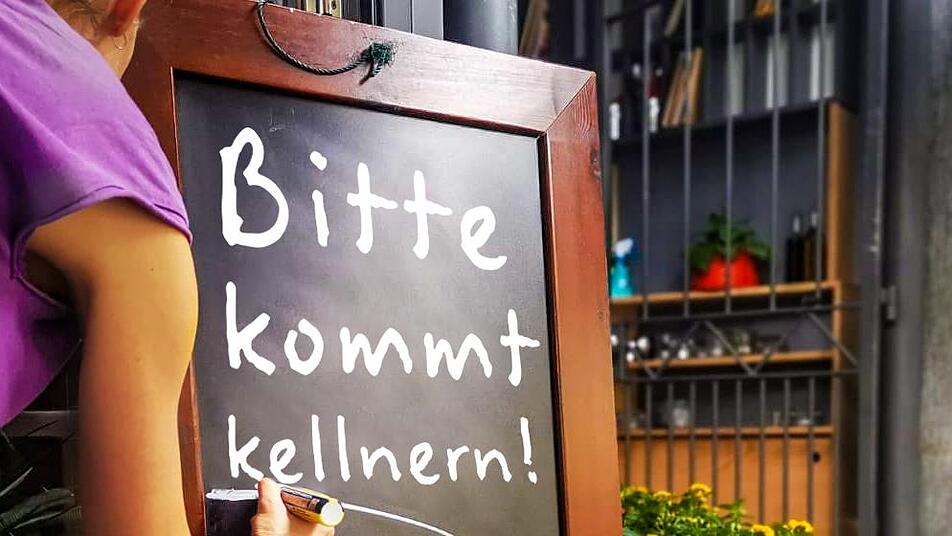 Bitte
kommt
kellnern!